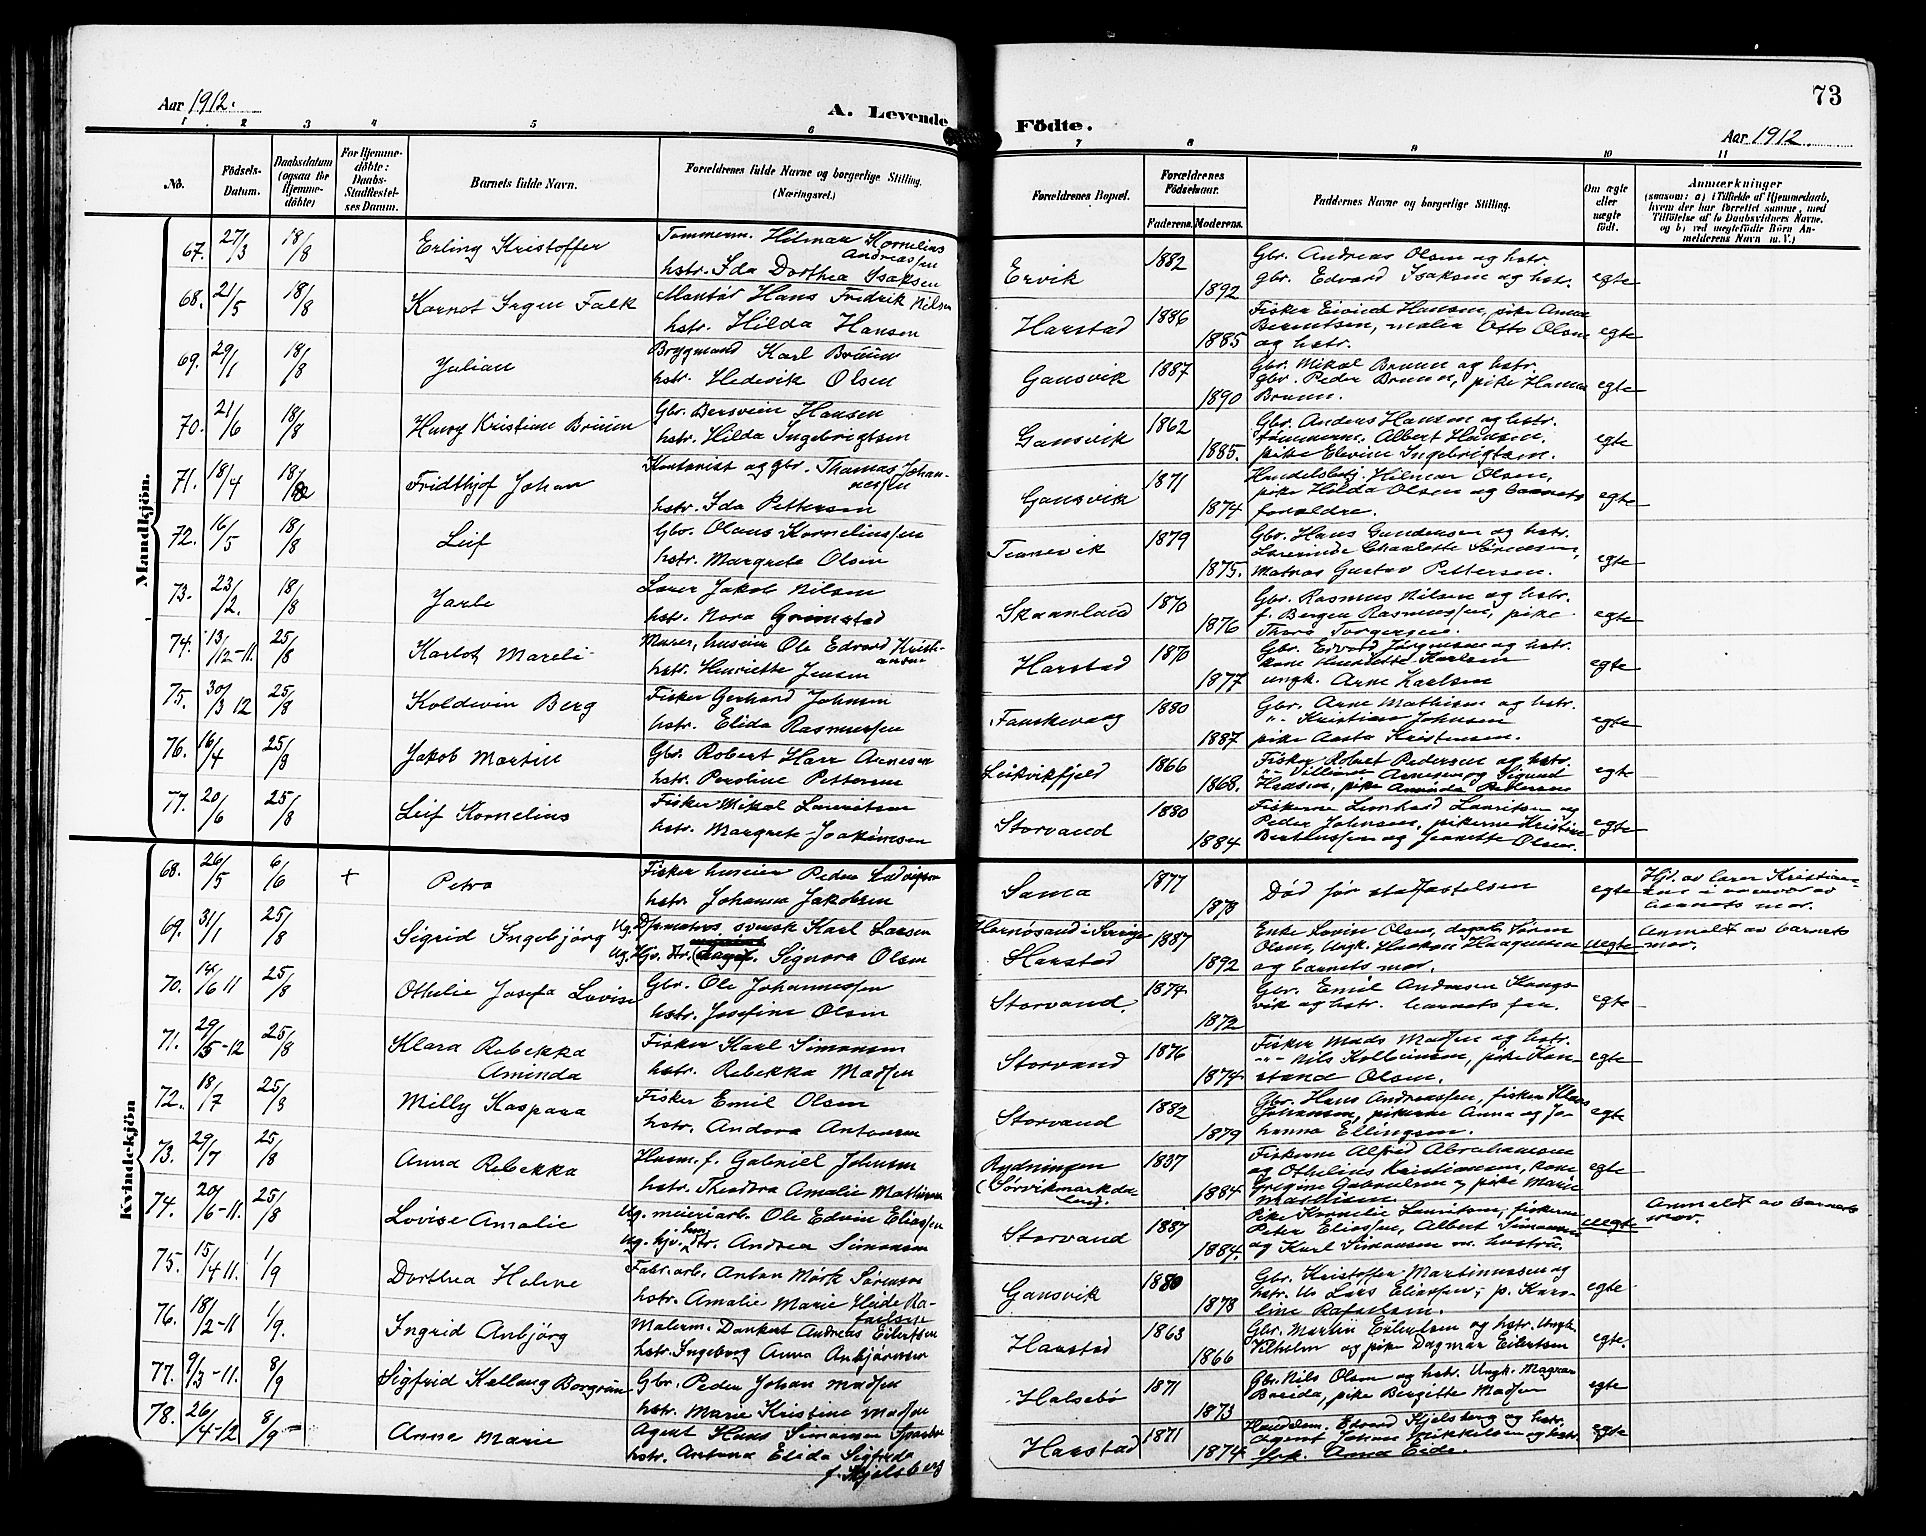 Aar 1912.
A. Levende
Födte.
73
Aar 1912.
1 2 3 4 5 6 7 8 9 10 11
No.
Födsels-Datum.
Daabsdatum (ogsaa for Hjemmedöbte)
For Hjemmedöbte: Daabs-Stadfæstelses Datum.
Barnets fulde Navn.
Forældrenes fulde Navne og borgerlige Stilling. (Næringsvei.)
Forældrenes Bopæl.
Forældrenes Födselsaar.
Faderens. Moderens.
Faddernes Navne og borgerlige Stilling.
Om ægte eller uægte födt.
Anmærkninger (saasom: a) i Tilfælde af Hjemmedaab, hvem der har forrettet samme, med Tilföielse af to Daabsvidners Navne, og b) ved uægtefödte Börn Anmelderens Navn m. V.)
Mandkjön.
67. 27/3 18/8 Erling Kristoffer
Tømmerm. Hilmar Kornelius Andreassen
hstr. Ida Dorthea Isaksen
Ervik 1882 1892
Gbr. Andreas Olsen og hstr.
gbr. Edvard Isaksen og hstr.
egte
68. 21/5 18/8 Karnot Irgen Falk
Montør Hans Fredrik Nilsen
hstr. Hilda Hansen
Harstad 1886 1885
Fisker Eivind Hansen, pike Anna
Berentsen, maler Otto Olsen
og hstr.
egte
69. 29/1 18/8 Julian
Brygmand Karl Bruun
hstr. Hedevik Olsen
Gansvik 1887 1890
Gbr. Mikal Bruun og hstr.
gbr. Peder Bruun, pike Hanna
Bruun.
egte
70. 21/6 18/8 Henry Kristian Bruun
Gbr. Bersvein Hansen
hstr. Hilda Ingebrigtsen
Gansvik 1862 1885.
Gbr. Anders Hansen og hstr.
tømmerm. Albert Hansen,
pike Elvine Ingebrigtsen.
egte
71. 18/4 18/8 Fridthjof Johan
Kontorist og gbr. Thomas Johannessen
hstr. Ida Pettersen
Gansvik 1871 1874
Handelsbetj. Hilmar Olsen,
pike Holda Olsen og barnets
forældre.
egte
72. 16/5 18/8 Leif
Gbr. Olaus Kornelinssen
hstr. Margrete Olsen
1879 1875.
Gbr. Hans Gundersen og hstr.
Lærerinde Charlotte Sørensen,
Matros Gustav Pettersen.
egte
73. 23/2. 18/8 Jarle
Lærer Jakob Nilsen
hstr. Nora Grimstad
Skaanland 1870 1876
Gbr. Rasmus Nilsen og hstr.
f. Bergen Rasmussen, pike
Thora Torgersen.
egte
74. 13/12-11. 25/8 Karlot Mareli
Murer, huseier Ole Edvard Kristiansen
hstr. Henriette Jensen
Harstad 1870 1877
Gbr. Edvard Jörgensen og hstr.
kone Henriette Karlsen
ungk. Arne Karlsen
egte
75. 30/3 12 25/8 Koldevin Berg
Fisker Gerhard Johnsen
hstr. Elida Rasmussen
Fauskevaag 1880 1887
Gbr. Arne Mathisen og hstr.
" Kristian Johnsen
pike Aasta Kristensen.
egte
76. 16/4 25/8 Jakob Martin
Gbr. Robert Harr Arnesen
hstr. Peroline Pettersen
Leikvikfjeld 1866 1868.
Fisker Robert Pedersen og hstr.
" Villiam Arnesen og Sigurd
Hansen, pike Aminda Pedersen
egte
77. 20/6 25/8 Leif Kornelius
Fisker Mikal Lauritsen
hstr. Margrete Joakimsen
Storvand 1880 1884
Fiskerne Leonhard Lauritsen og
Peder Johnsen, pikerne Kristine
Berthenssen og Jeanette Olsen.
egte
Kvindekjön
68. 26/5 6/6 + Petra
Fisker huseier Peder Ludvigsen
hstr. Johanna Jakobsen
Sama 1877 1878
Død før stadfæstelsen
egte
Hjd. av lærer Kristiansen i nærvær av
barnets mor.
69. 31/1 25/8 Sigrid Ingebjörg
Ug. svensk Karl Larsen
Ug. Hjv. Str. Signora Olsen
Hernøsand i Sverige
Harstad 1887 1892
Enke Lovise Olsen, dagarb. Sören
Olsen, Ungk. Haakon Haagensen
og barnets mor.
uegte
Anmeldt av barnets
mor.
70. 14/6 11 25/8 Othelie Josefa Lovise
Gbr. Ole Johannessen
hstr. Josefine Olsen
Storvand. 1874 1872
Gbr. Emil Andersen Kongsvik og hstr. barnets far
egte
71. 29/5-12 25/8 Klara Rebekka
Aminda
Fisker Karl Simonsen
hstr. Rebekka Madsen
Storvand 1876 1874
Fisker Mads Madsen og hstr.
" Nils Kolbeinsen, pike Konstance Olsen.
egte
72. 18/7 25/8 Milly Kaspara
Fisker Emil Olsen
hstr. Andora Antonsen
Storvand 1882 1879
Gbr. Hans Andreassen, fisker Klaus
Johansen, pikerne Anna og Johanna Ellingsen.
egte
73. 29/7 25/8 Anna Rebekka
Husm. f. Gabriel Johnsen
hstr. Theodora Amalie Mathisen
Rydningen
(Sørvikmarkda-
land.) 1837 1884
Fiskerne Alfred Abrahamsen
og Othelius Kristiansen, kone
Gregine Gabrielsen og pike Marie
Mathisen
egte
74. 20/6-11. 25/8 Lovise Amalie
Ug. meieriarb. Ole Edvin Eliassen
Ug. hjv. Str. Andrea Simonsen
Storvand 1887 1884.
Pike Kornelie Lauritsen, fiskerne
Peter Eliassen, Albert Simonsen
og Karl Simonsen m. hustru.
uegte
Anmeldt av barnets
mor.
75. 15/4-11. 1/9 Dorthea Helene
Fabr. arb. Anton Mørk Sørensen
hstr. Amalie Marie Heide Rafaelsen
Gansvik 1880 1878
Gbr. Kristoffer Martinussen og
hstr. Us Lars Eliassen; p. Karoline Rafaelsen.
egte
76. 18/2-11 1/9. Ingrid Anbjörg
Malerm. Dankert Andreas Eilertsen
hstr. Ingeborg Anna Anbjørnsen
Harstad 1863 1866
Gbr. Martin Eilertsen og hstr. Ungk.
Vilhelm og pike Dagmar Eilertsen
egte.
77. 9/3-11. 8/9 Sigfrid Kellaug Borgrun
Gbr. Peder Johan Madsen
hstr. Marie Kristine Madsen
Halsebø 1871 1873
Gbr. Nils Olsen og hstr. Ungk. Magnar
Breida, pike Bergitte Madsen
egte
78. 26/4-12 8/9 Anne Marie
Agent Hans Simonsen
hstr. Antona Elida Sigfrida
f. Hjelsberg
Harstad 1871 1874
Handelsm. Edvard Kjelsberg og hstr.
Agent Johan Mikkelsen og hstr.
frk. Anna Eide.
egte